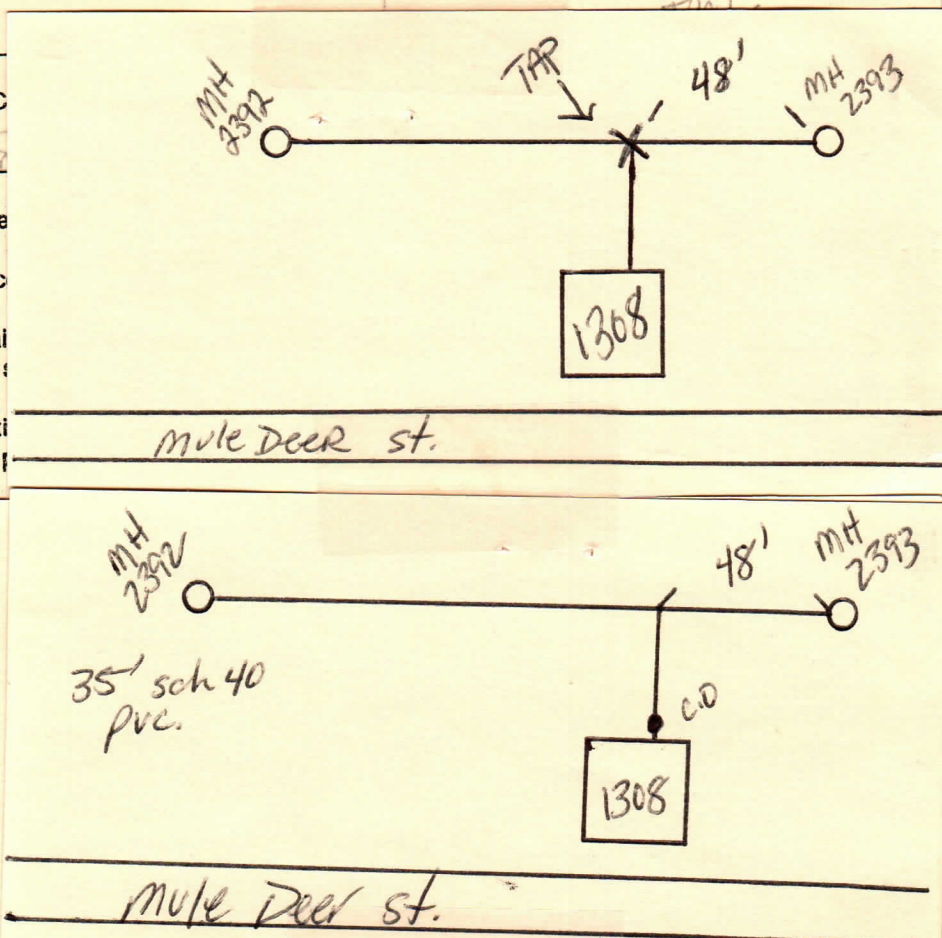 TAP
48'
MH
2392
MH
2393
1308
mule DEER st.
MH
2392
48'
MH
2393
35' sch 40
pvc.
C.O
1308
Mule Deer st.